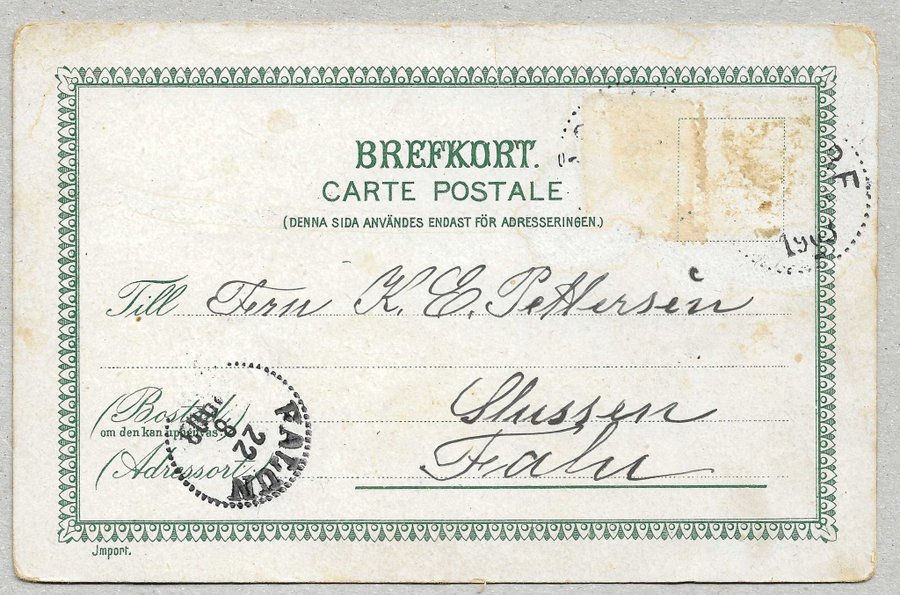 BREFKORT.
CARTE POSTALE
(DENNA SIDA ANVÄNDES ENDAST FÖR ADRESSERINGEN.)
Till Fern K. E. Pettersén
(Bostad)
om den kan uppgifvas.
Slussen
(Adressort)
Falu
FALUN
22
8
Import.